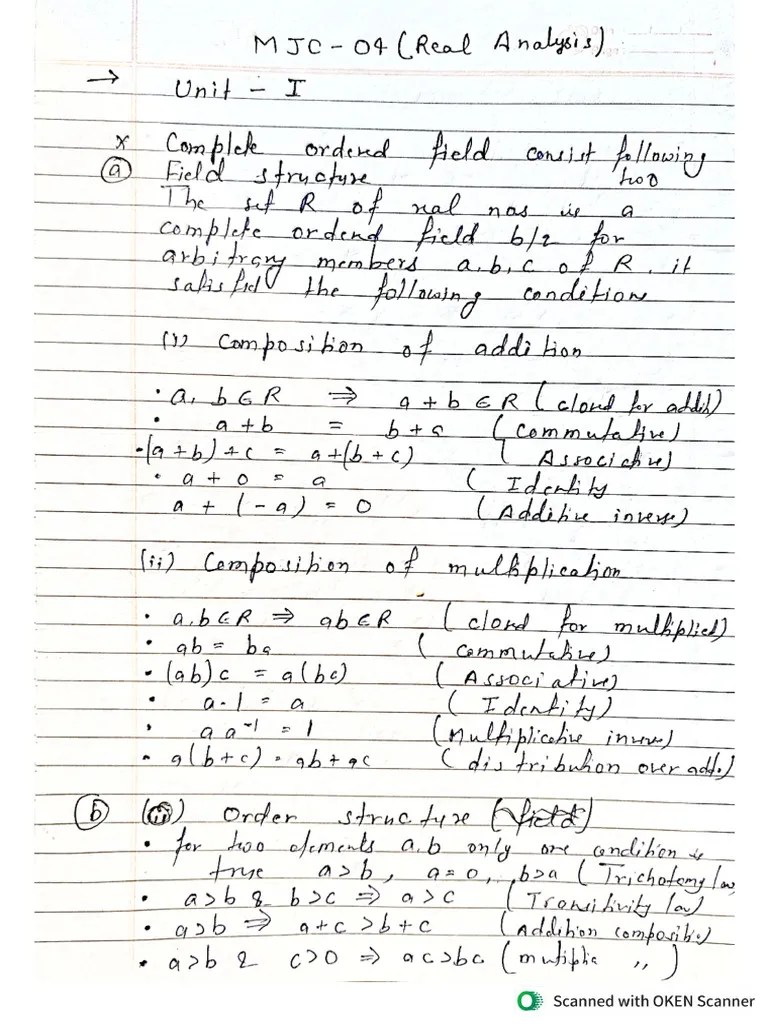 MJC-04 (Real Analysis)
→ Unit - I
x Complete ordered field consist following
two
(a) Field structure
The set R of real nos is a
complete ordered field b/z for
arbitrary members a, b, c of R, it
satisfied the following conditions
(i) Composition of addition
· a, b ∈ R ⇒ a + b ∈ R (closed for addit)
· a + b = b + a (Commutative)
· (a + b) + c = a + (b + c) (Associative)
· a + 0 = a (Identity
a + (-a) = 0 (Additive inverse)
(ii) Composition of multiplication
· a, b ∈ R ⇒ ab ∈ R (closed for multiplied)
· ab = ba (commutative)
· (ab)c = a(bc) (Associative)
· a·1 = a (Identity)
· a a⁻¹ = 1 (Multiplicative inverse)
· a(b+c) = ab + ac (distribution over add.)
(b) (ii) Order structure (field)
· for two elements a, b only one condition is
true a>b, a=0, b>a (Trichotomy law
· a>b & b>c ⇒ a>c (Transitivity law)
· a>b ⇒ a+c > b+c (Addition compositio)
· a>b & c>0 ⇒ ac>bc (mutiplic ,, )
Scanned with OKEN Scanner